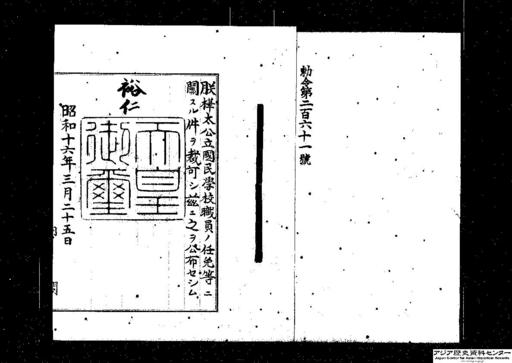 勅令第二百六十一號
朕樺太公立國民學校職員ノ任免等ニ
關スル件ヲ裁可シ茲ニ之ヲ公布セシム
裕仁
天皇御璽
昭和十六年三月二十五日
アジア歴史資料センター
Japan Center for Asian Historical Records